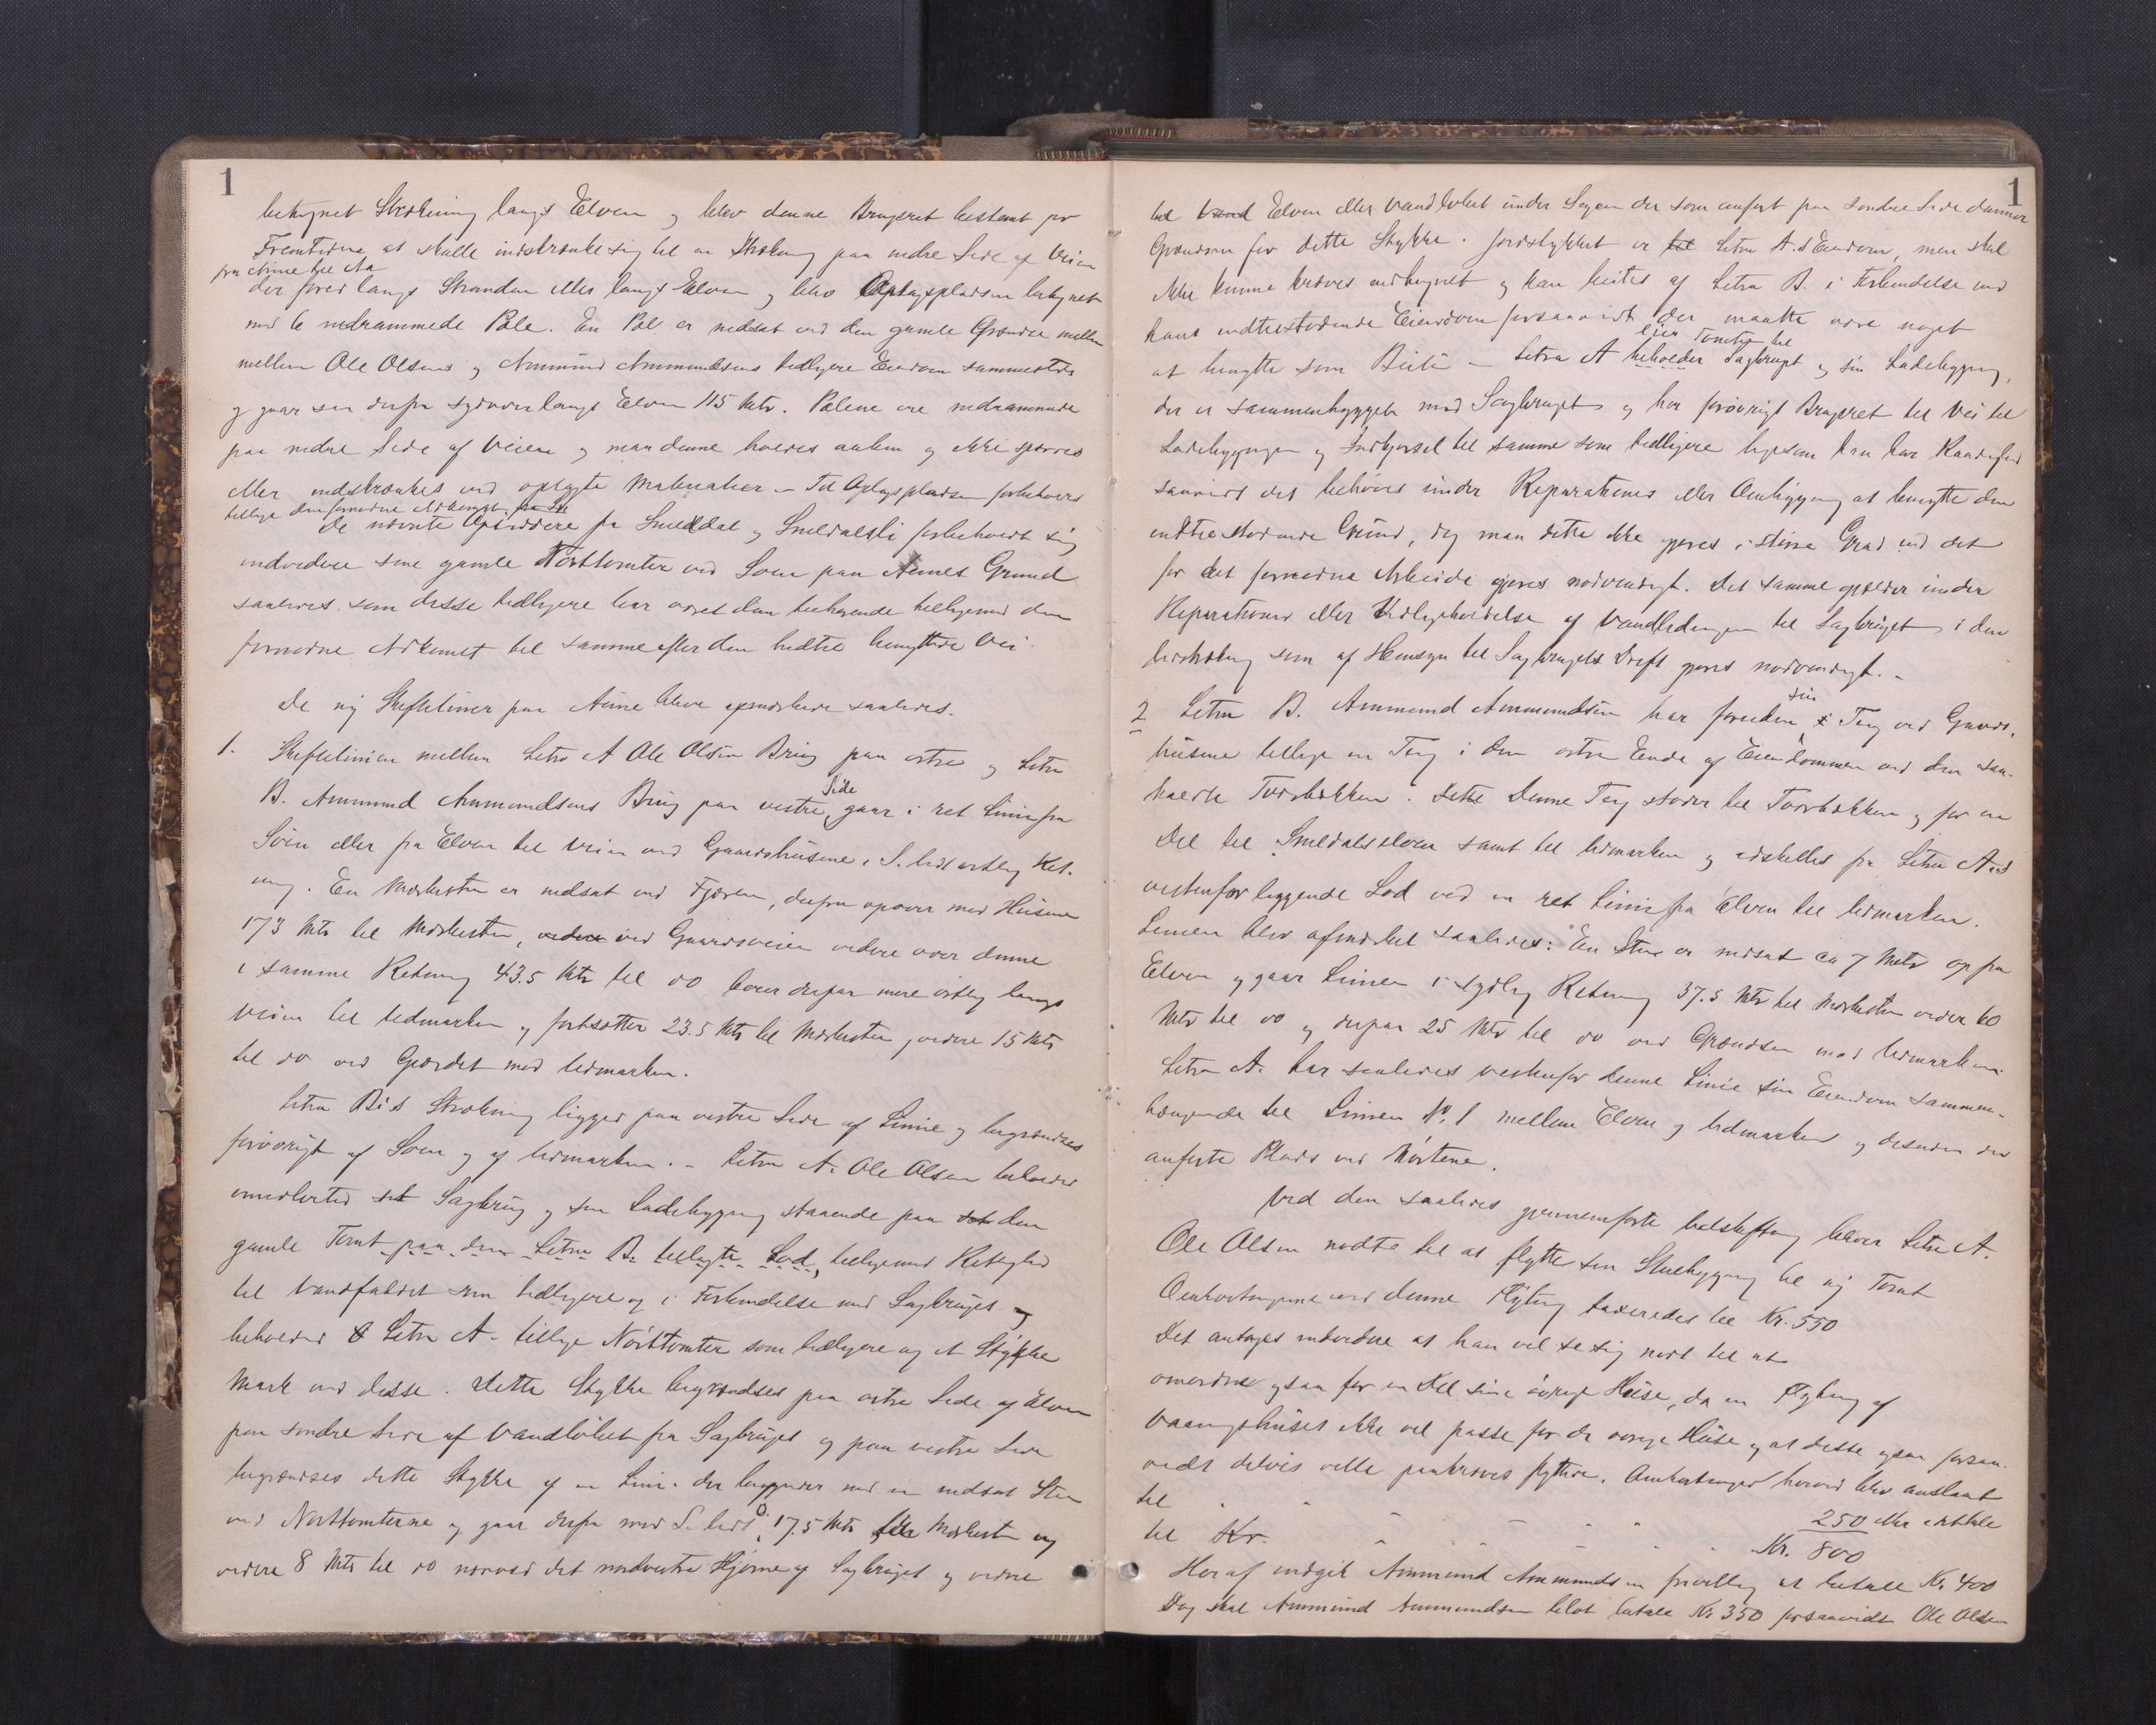 1
betegnet Strækning langs Elven og blev denne Brugsret bestemt for
Fremtiden at skulle indskrænke sig til en Strækning paa nedre Side af Veien
fra Ainne til Aa
der fører langs Stranden eller langs Elven og blev Oplagspladsen betegnet
med 6 nedrammede Pæle. En Pæl er nedsat ved den gamle Grændse mellem
mellem Ole Olsens og Ammund Ammundsens tidligere Eiendom sammesteds
og gaar saa derfra sydover langs Elven 115 Mtr. Pælene ere nedrammede
paa nedre Side af Veien og maa denne holdes aaben og ikke spærres
eller indskrænkes ved oplagte Materialier – Til Oplagspladsen forbeholdes
tillige den fornødne Adkomst fra
De nævnte Opsiddere fra Smeddal og Smeldalsli forbeholdt sig
endvidere sine gamle Nøsttomter ved Søen paa Aennes Grund
saaledes som disse tidligere har været dem tilhørende tilligemed den
fornødne Adkomst til samme efter den hidtil benyttede Vei.
De ny Skiftelinier paa Ainne bleve afmærkede saaledes.
1. Skiftelinien mellem Litra A Ole Olsens Brug paa østre og Litra
B. Ammund Ammundsens Brug paa vestre Side gaar i ret Linie fra
Søen eller fra Elven til Veien ved Gaardshusene i S. lidt østlig Ret-
ning. En Mærkesten er nedsat ved Fjæren, derfra opover mod Husene
173 Mtr til Mærkesten, videre ved Gaardsveien videre over denne
i samme Retning 43.5 Mtr til do bøier derpaa mere østlig langs
Veien til Udmarken og fortsætter 23.5 Mtr til Mærkesten, videre 15 Mtr
til do ved Gjærdet mod Udmarken.
Litra B's Strækning ligger paa vestre Side af Linie og begrændses
forøvrigt af Søen og af Udmarken. – Litra A. Ole Olsen beholder
imidlertid sit Sagbrug og sin Ladebygning staaende paa den
gamle Tomt paa den Litra B. tillagte Lod, tilligemed Rettighed
til Vandfaldet som tidligere og i Forbindelse med Sagbruget og
beholder Litra A. tillige Nøsttomter som tidligere og et Stykke
Mark ved disse. Dette Stykke begrændses paa østre Side af Elven
paa søndre Side af Vandløbet fra Sagbruget og paa vestre Side
begrændses dette Stykke af en Linie der begynder med en nedsat Sten
ved Nøsttomterne og gaar derfra mod S. lidt O. 17.5 Mtr til Mærkesten og
videre 8 Mtr til do nærved det nordvestre Hjørne af Sagbruget og videre
1
til Vand Elven eller Vandløbet under Sagen der som anført paa søndre Side danner
Grændsen for dette Stykke. Jordstykket er Litra A.s Eiendom, men skal
ikke kunne kræves indhegnet og kan beites af Litra B. i Forbindelse med
hans indtilstødende Eiendom forsaavidt der maatte være noget
eier Tomten til
at benytte som Beite – Litra A beholder Sagbruget og sin Ladebygning,
der er sammenbygget med Sagbruget og har forøvrigt Brugsret til Vei til
Ladebygningen og Indkjørsel til samme som tidligere ligesom han har Raadighed
saavidt det behøves under Reparationer eller Ombygning at benytte den
indtilstødende Grund, dog maa dette ikke gjøres i større Grad end det
for det fornødne Arbeide gjøres nødvendigt. Det samme gjælder under
Reparationer eller Vedligeholdelse af Vandledningen til Sagbruget i den
Udstrækning som af Hensyn til Sagbrugets Drift gjøres nødvendigt. –
2 Litra B. Ammund Ammundsen har foruden sin Teig ved Gaards-
husene tillige en Teig i den østre Ende af Eiendommen ved den saa-
kaldte Tverbækken. Denne Teig støder til Tverbækken og for en
Del til Smeldalselven samt til Udmarken og adskilles fra Litra A.s
vestenfor liggende Lod ved en ret Linie fra Elven til Udmarken.
Linien blev afmærket saaledes: En Sten er nedsat ca 7 Mtr op fra
Elven og gaar Linien i sydlig Retning 37.5 Mtr til Mærkesten videre 60
Mtr til do og derpaa 25 Mtr til do ved Grændsen mod Udmarken.
Litra A. har saaledes vestenfor denne Linie sin Eiendom sammen-
hængende til Linien No. 1 mellem Elven og Udmarken og desuden den
anførte Plads ved Nøstene.
Ved den saaledes gjennemførte Udskiftning bliver Litra A.
Ole Olsen nødt til at flytte sin Stuebygning til ny Tomt
Omkostningerne ved denne Flytning taxeredes til Kr. 550
Det antages endvidere at han vil se sig nødt til at
omordne ogsaa for en Del sine øvrige Huse, da en Flytning af
Vaaningshuset ikke vil passe for de øvrige Huse og at disse ogsaa forsaa-
vidt delvis ville paakræves flyttede. Omkostninger herved blev anslaaet
til " " " " " 250
til Kr. " " " " Kr. 800
Heraf indgik Ammund Ammundsen frivillig at betale Kr. 400
Dog skal Ammund Ammundsen blot betale Kr 350 forsaavidt Ole Olsen